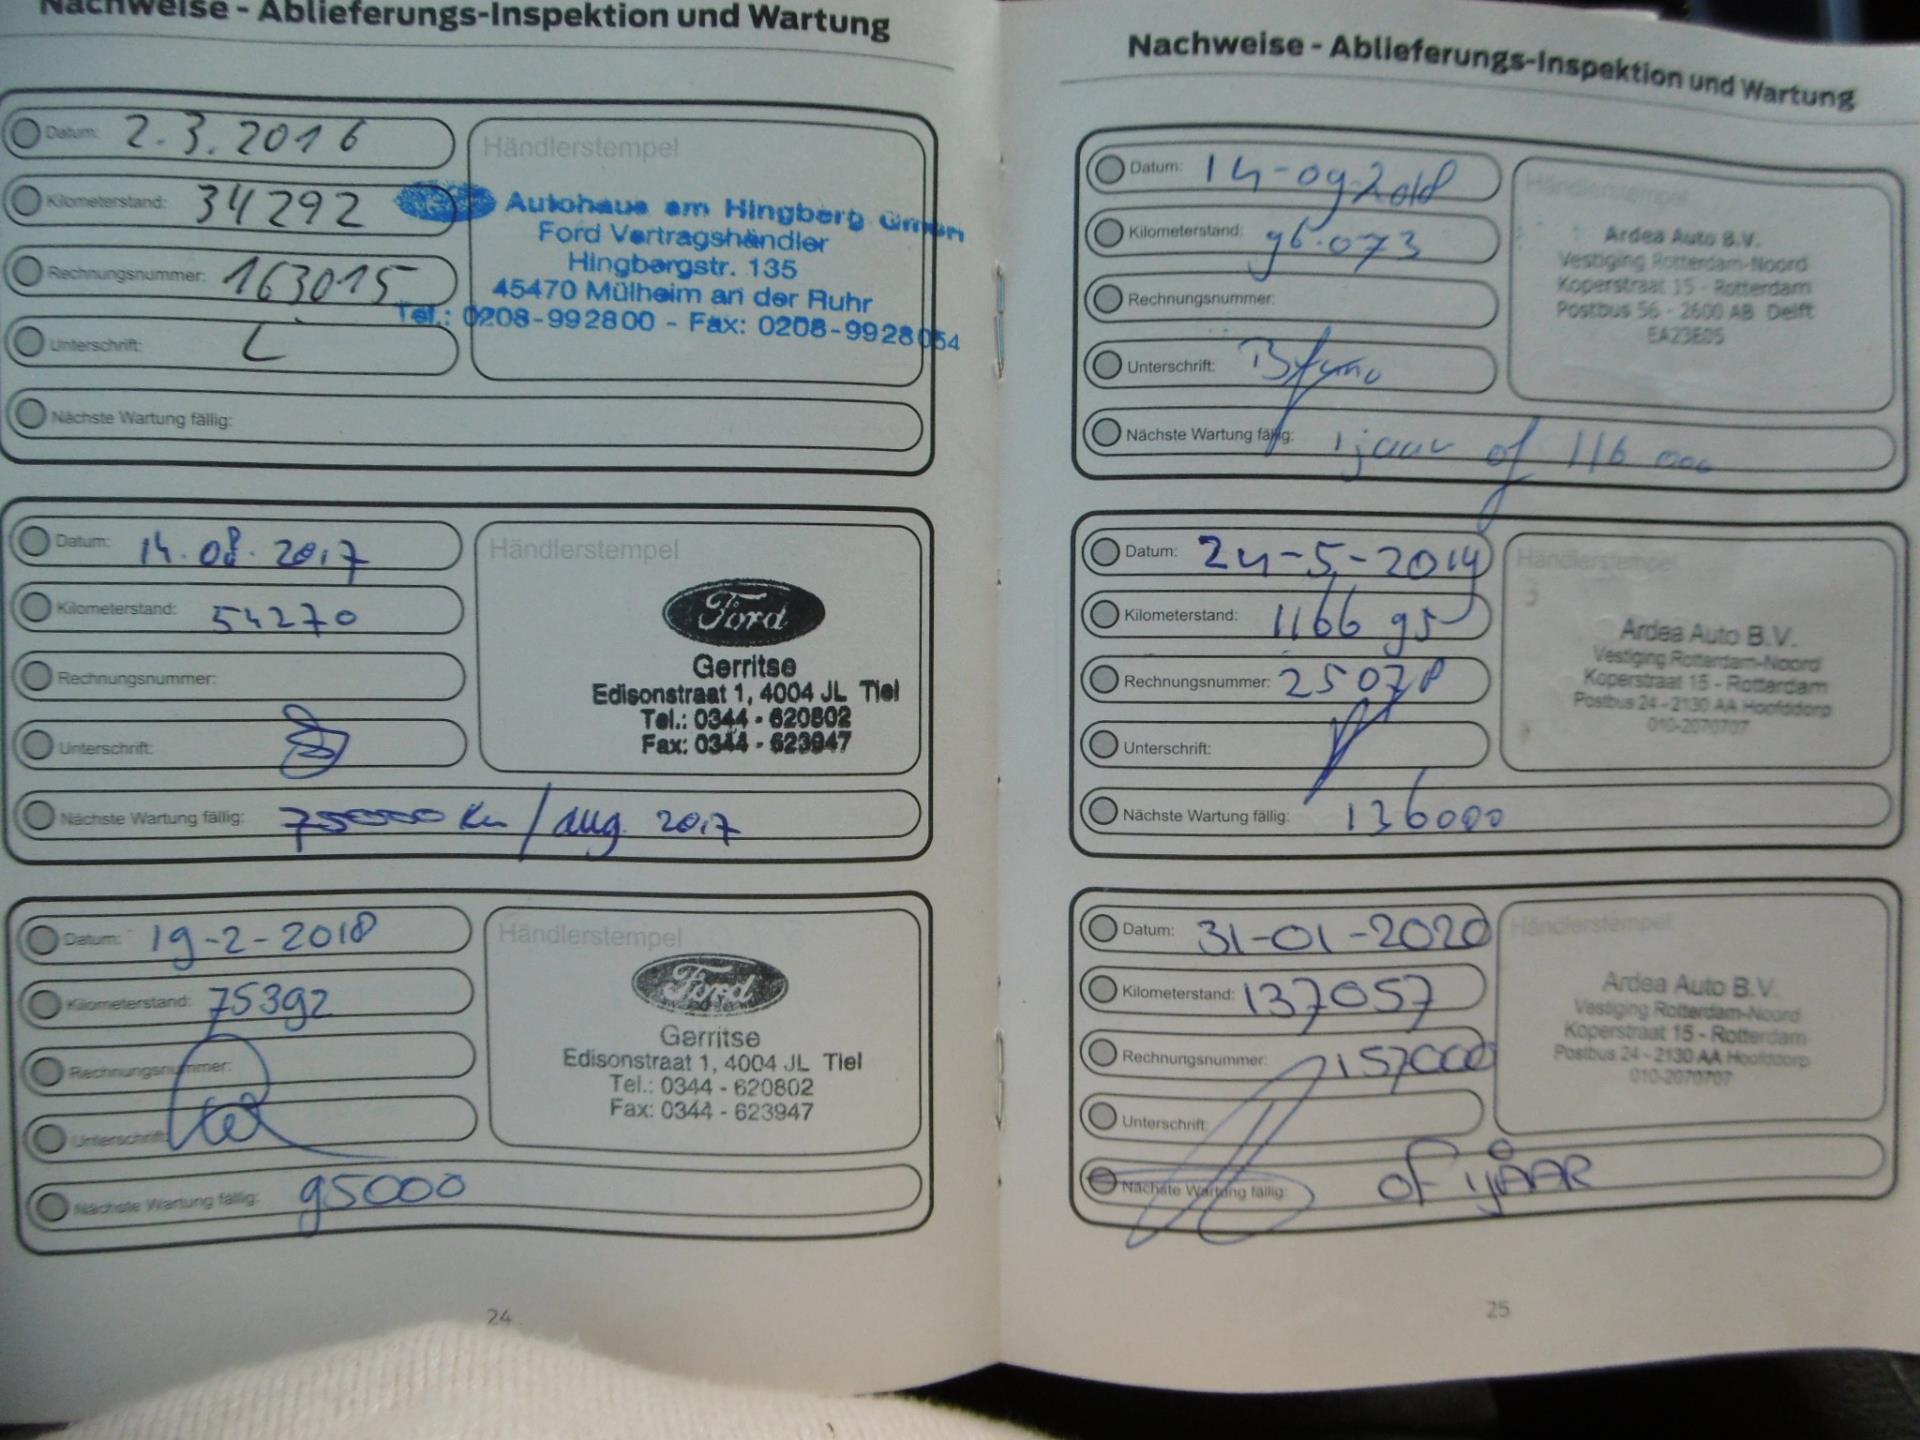 Nachweise - Ablieferungs-Inspektion und Wartung
Datum: 2.3.2016
Kilometerstand: 34292
Rechnungsnummer: 163015
Unterschrift:
Nächste Wartung fällig:
Händlerstempel
Autohaus am Hingberg GmbH
Ford Vertragshändler
Hingbergstr. 135
45470 Mülheim an der Ruhr
Tel.: 0208-992800 - Fax: 0208-9928054
Datum: 14.08.2017
Kilometerstand: 54270
Rechnungsnummer:
Unterschrift:
Nächste Wartung fällig: 75000 Km / aug. 2017
Händlerstempel
Ford
Gerritse
Edisonstraat 1, 4004 JL Tiel
Tel.: 0344 - 620802
Fax: 0344 - 623947
Datum: 19-2-2018
Kilometerstand: 75392
Rechnungsnummer:
Unterschrift:
Nächste Wartung fällig: 95000
Händlerstempel
Ford
Gerritse
Edisonstraat 1, 4004 JL Tiel
Tel.: 0344 - 620802
Fax: 0344 - 623947
24
Nachweise - Ablieferungs-Inspektion und Wartung
Datum: 14-09-2018
Kilometerstand: 96.073
Rechnungsnummer:
Unterschrift:
Nächste Wartung fällig: 1 jaar of 116 000
Händlerstempel
Ardea Auto B.V.
Vestiging Rotterdam-Noord
Koperstraat 15 - Rotterdam
Postbus 56 - 2600 AB Delft
EA23E05
Datum: 24-5-2019
Kilometerstand: 116695
Rechnungsnummer: 25078
Unterschrift:
Nächste Wartung fällig: 136000
Händlerstempel
Ardea Auto B.V.
Vestiging Rotterdam-Noord
Koperstraat 15 - Rotterdam
Postbus 24 - 2130 AA Hoofddorp
010-2070707
Datum: 31-01-2020
Kilometerstand: 137057
Rechnungsnummer: 157000
Unterschrift:
Nächste Wartung fällig: OF 1 JAAR
Händlerstempel
Ardea Auto B.V.
Vestiging Rotterdam-Noord
Koperstraat 15 - Rotterdam
Postbus 24 - 2130 AA Hoofddorp
010-2070707
25